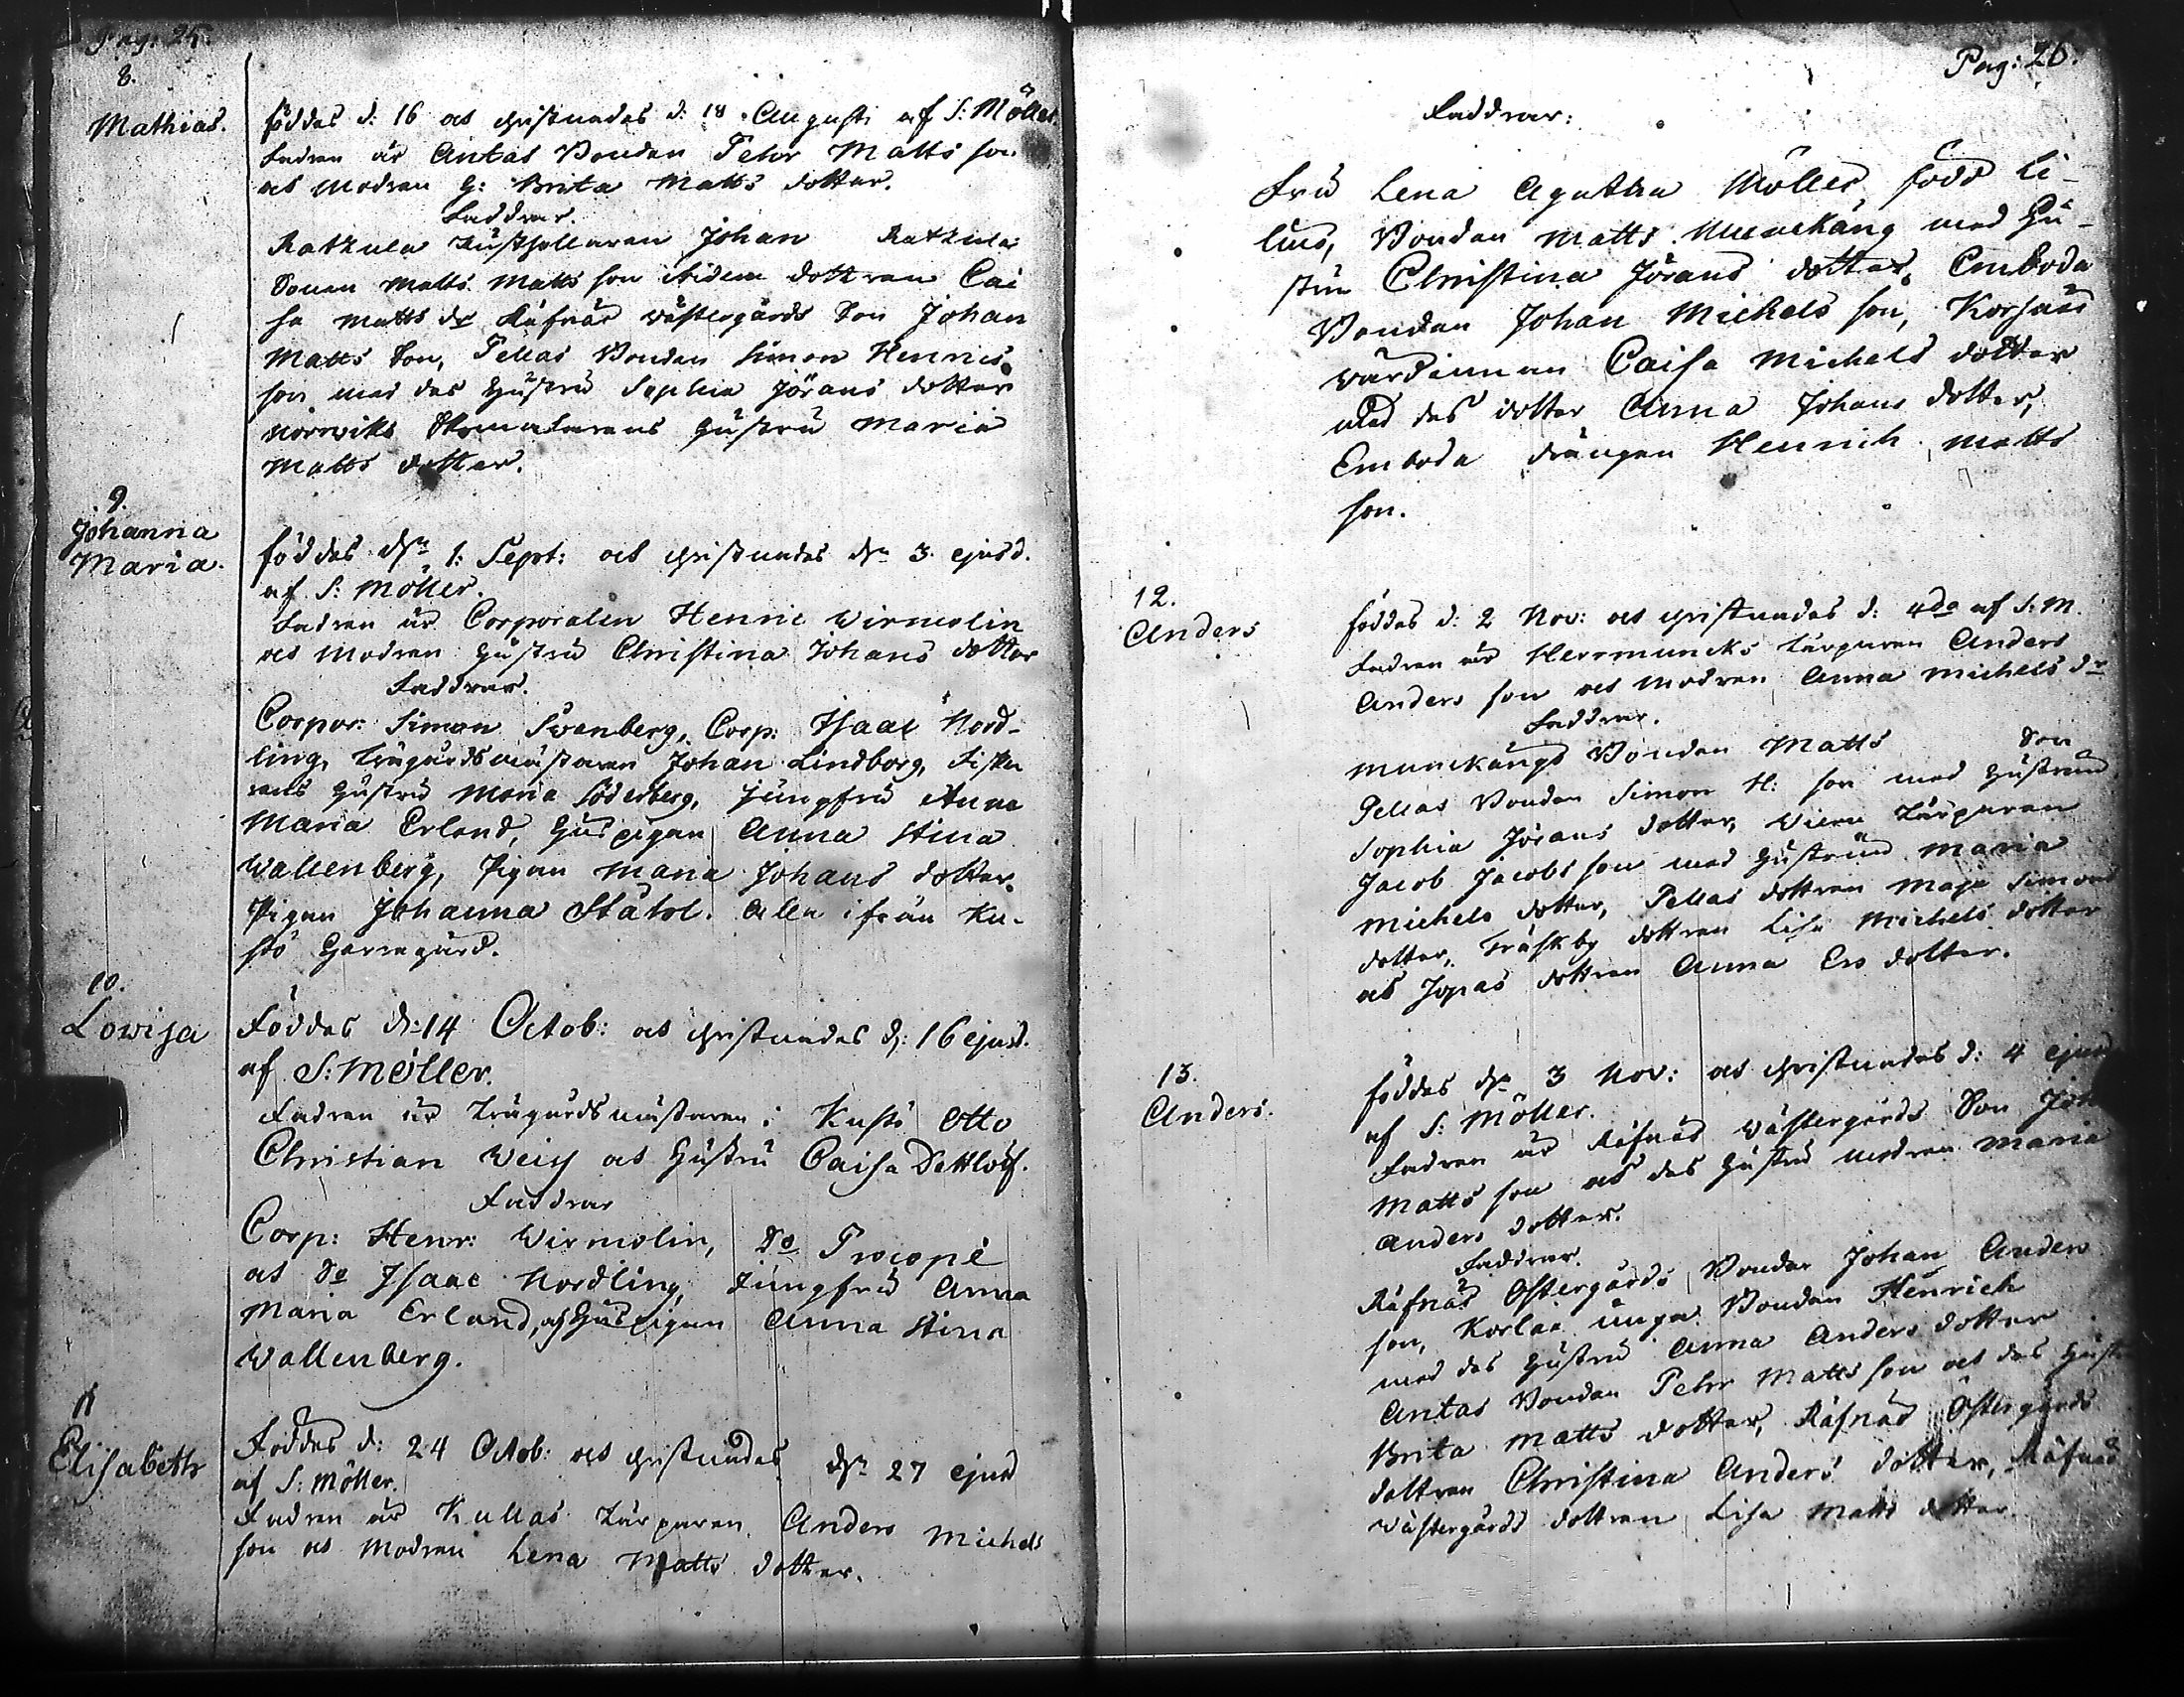 Pag: 25.
8.
Mathias.
föddes d: 16 och christnades d: 18 Augusti af S: Möller
Fadren är Antas Bonden Pehr Matts son
och Modren H: Brita Matts dotter.
Faddrar.
Rathula Rusthollaren Johan Rathula
Sonen Matts Matts son Dottren Cai
sa Matts dr Räfnäs Wästergårds Son Johan
Matts Son, Pellas Bonden Simon Henrics
son med des Hustru Sophia Jörans dotter
Norrwiks Hustru Maria
Matts dotter.
9.
Johanna
Maria.
föddes dn 1: Sept: och christnades dn 3 ejusd.
af S: Möller.
Fadren är Corporalen Henric Wirmolin
och Modren Hustru Christina Johans dotter
Faddrar.
Corpor: Simon Swenberg, Corp: Isaac Nord-
ling, Trägårdsmästaren Johan Lindborg, Fiska
rens Hustru Maria Söderberg, Jungfru Anna
Maria Erland, Huspigan Anna Stina
Wallenberg, Pigan Maria Johans dotter
Pigan Johanna Ståhl. Alla ifrån Ku-
stö Herregård.
10.
Lowisa
Föddes d: 14 Octob: och christnades d: 16 ejusd.
af S: Möller.
Fadren är Trägårdsmästaren i Kustö Otto
Christian Weiss och Hustru Caisa Dettlöff.
Faddrar
Corp: Henr: Wirmolin, Do Procopé
och Do Isaac Nordling, Jungfru Anna
Maria Erland, och Huspigan Anna Stina
Wallenberg.
11
Elisabeth
Föddes d: 24 Octob: och christnades dn 27 ejusd
af S: Möller.
Fadren är Kullas Torparen Anders Michels
son och Modren Lena Matts dotter.
Pag: 26.
Faddrar:
Fru Lena Agatha Möller, född Li-
lius, Bonden Matts Munckäng med Hu-
stru Christina Jörans dotter, Emboda
Bonden Johan Michels son, Korsais
wärdinnan Caisa Michels dotter
med des dotter Anna Johans dotter,
Emboda drängen Henrich Matts
son.
12.
Anders
föddes d: 2 Nov: och christnades d: 4do af S: M.
Fadren är Herrmuncks Torparen Anders
Anders son och Modren Anna Michels dr
Faddrar.
Munckängs Bonden Matts Son
Pellas Bonden Simon H: son med Hustrun
Sophia Jörans dotter, Torparen
Jacob Jacobs son med Hustrun Maria
Michels dotter, Pellas dottren Maja Simons
dotter, Träskby dottren Lisa Michels dotter
och Jopas dottren Anna Ers dotter.
13.
Anders.
föddes dn 3 Nov: och christnades d: 4 ejusd
af S: Möller.
Fadren är Räfnäs Wästergårds Son Joh
Matts son och des Hustru Modren Maria
Anders dotter.
Faddrar.
Räfnäs Östergårds Bonden Johan Anders
son, Korlai unga Bonden Henrich
med des Hustru Anna Anders dotter
Antas Bonden Pehr Matts son och des Hustru
Brita Matts dotter, Räfnäs Östergårds
dottren Christina Anders dotter, Räfnäs
Wästergårds dottren Lisa Matts dotter.